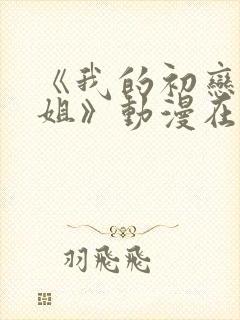 《我的初戀
姐》動漫在
羽飛飛